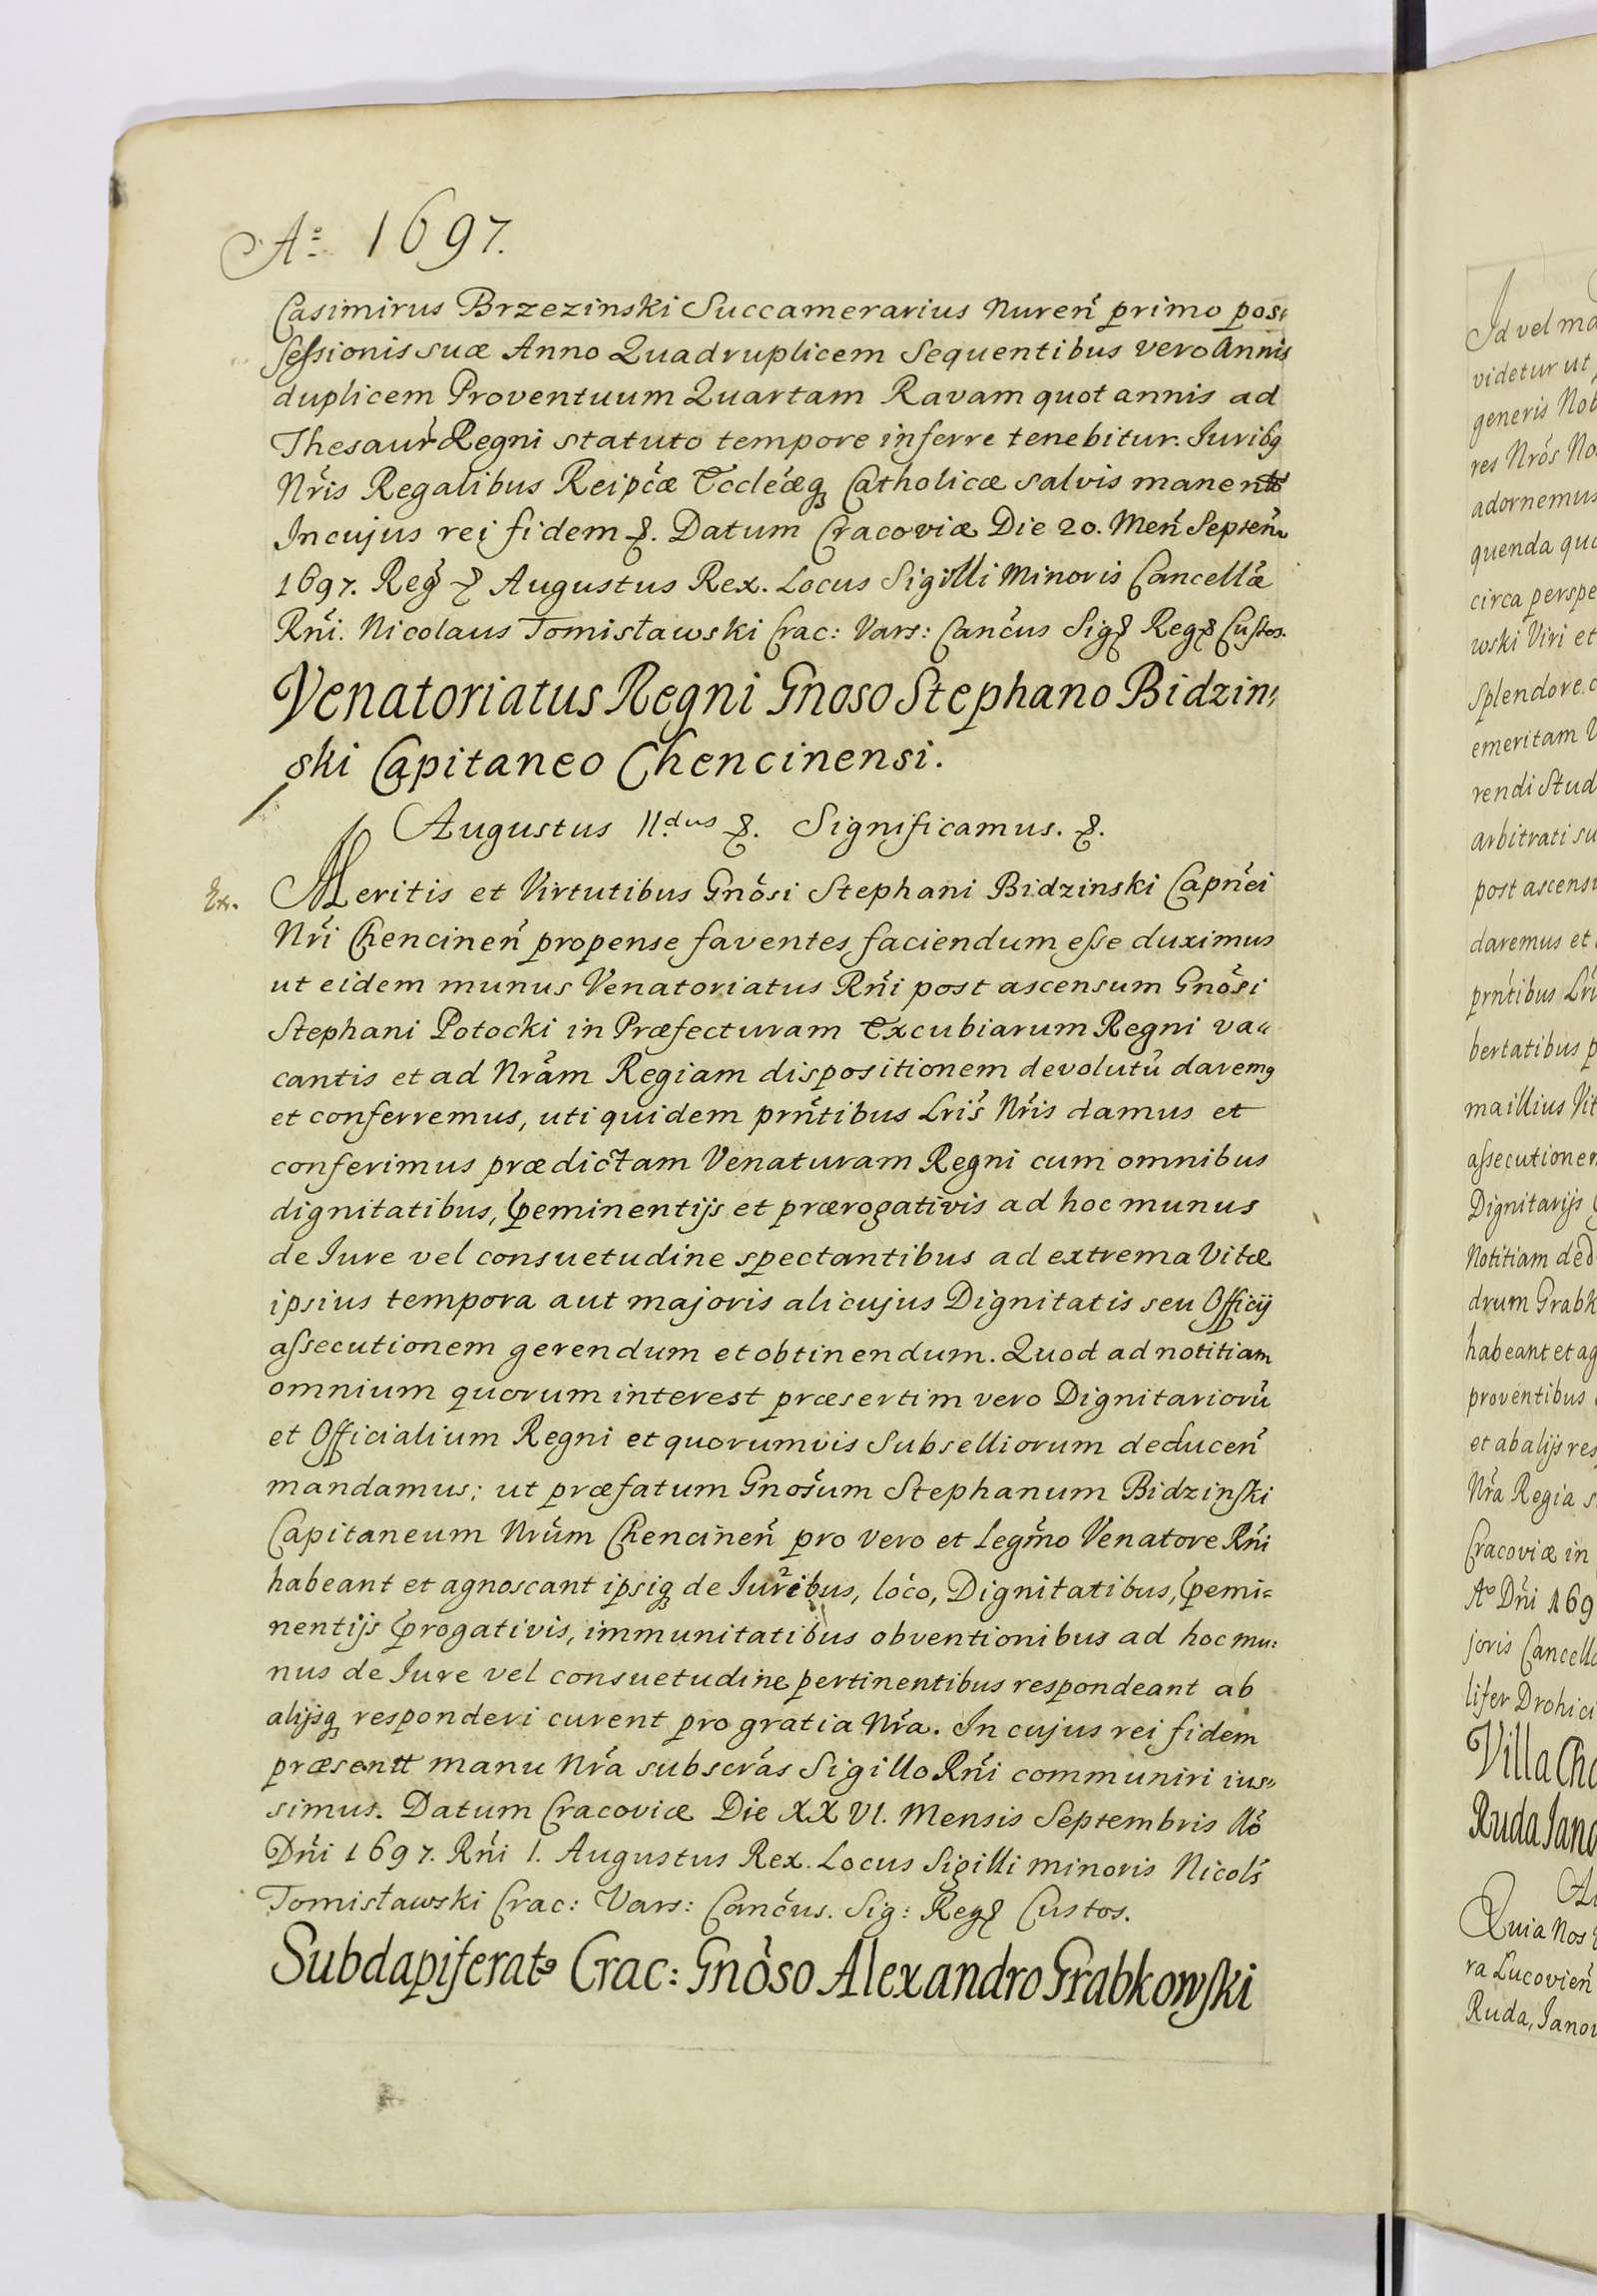 Aº 1697.
Casimirus Brzezinski Succamerarius Nureñ primo pos,
seſsionis suæ Anno Quadruplicem Sequentibus vero Annis
duplicem Proventuum Quartam Ravam quot annis ad
Thesaur̃ Regni statuto tempore inferre tenebitur. Juribq
Nr̃is Regalibus Reipc̃æ Eccle̋æq Catholicæ salvis manentt
In cujus rei fidem &. Datum Cracoviæ Die 20. Meñ Septeñ
1697. Reg̃ & Augustus Rex. Locus Sigilli Minoris Cancellæ̃
Rñi. Nicolaus Tomisławski Crac: Vars: Canc̃us Sig& Reg& Custos.
Venatoriatus Regni Gnoso Stephano Bidzin,
ski Capitaneo Chencinensi.
Augustus II.dus &. Significamus. &.
Ex.
Meritis et Virtutibus Gnõsi Stephani Bidzinski Capñei
Nr̃i Chencineñ propense faventes faciendum eſse duximus
ut eidem munus Venatoriatus Rñi post ascensum Gnõsi
Stephani Potocki in Præfecturam Excubiarum Regni va„
cantis et ad Nrãm Regiam dispositionem devolutũ daremq
et conferremus, uti quidem prñtibus Lr̃is Nr̃is damus et
conferimus prædictam Venaturam Regni cum omnibus
dignitatibus, p̃eminentijs et prærogativis ad hoc munus
de Jure vel consuetudine spectantibus ad extrema Vitæ
ipsius tempora aut majoris alicujus Dignitatis seu Officij
aſsecutionem gerendum et obtinendum. Quod ad notitiam
omnium quorum interest præsertim vero Dignitariorũ
et Officialium Regni et quorumvis Subselliorum deduceñ
mandamus; ut præfatum Gnõsum Stephanum Bidzinſki
Capitaneum Nrũm Chencineñ pro vero et Legm̃o Venatore Rñi
habeant et agnoscant ipsiq de Juribus, loco, Dignitatibus, p̃emi=
nentijs p̃rogativis, immunitatibus obventionibus ad hoc mu:
nus de Jure vel consuetudine pertinentibus respondeant ab
alijsq responderi curent pro gratia Nr̃a. In cujus rei fidem
præsentt manu Nr̃a subscrãs Sigillo Rñi communiri ius„
simus. Datum Cracoviæ Die XXVI. Mensis Septembris Aõ
Dñi 1697. Rñi I. Augustus Rex. Locus Sigilli minoris Nicols̃
Tomisławski Crac: Vars: Canc̃us. Sig: Reg& Custos.
Subdapiferatq Crac: Gnõso Alexandro Grabkowſki
Id vel ma
videtur ut
generis Nob
res Nrõs No
adornemus
quenda qua
circa perspe
wski Viri et
Splendore
emeritam
rendi Stud
arbitrati su
post ascens
daremus et
prñtibus Lr̃i
bertatibus p
ma illius Vit
aſsecutionem
Dignitarijs
Notitiam ded
drum Grabk
habeant et ag
proventibus
et ab alijs res
Nr̃a Regia s
Cracoviæ in
Aº Dñi 169
joris Cancella
lifer Drohici
Villa Cho
Ruda Jano
Au
Quia Nos
ra Lucovieñ
Ruda, Janow